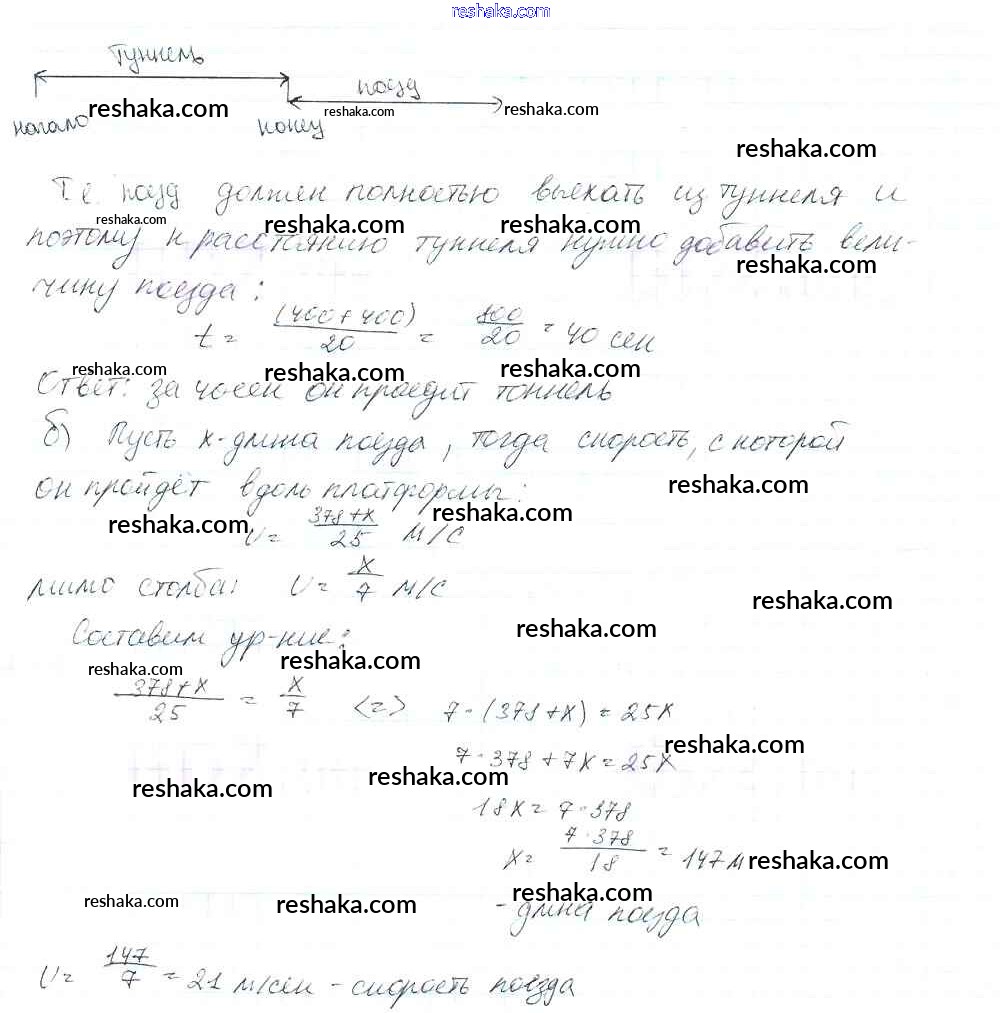 reshaka.com
Туннель
поезд
reshaka.com reshaka.com reshaka.com
начало конец
reshaka.com
Т.е. поезд должен полностью выехать из туннеля и
reshaka.com reshaka.com reshaka.com
поэтому к расстоянию туннеля нужно добавить вели-
reshaka.com
чину поезда:
t = (400+400)/20 = 800/20 = 40 сек
reshaka.com reshaka.com reshaka.com
Ответ: за 40 сек он проедит тоннель
б) Пусть x-длина поезда, тогда скорость, с которой
он пройдёт вдоль платформы:
reshaka.com
reshaka.com reshaka.com
V = 378+x/25 м/с
мимо столба: V = x/7 м/с
reshaka.com
reshaka.com
Составим ур-ние:
reshaka.com reshaka.com
378+x/25 = x/7 <=> 7·(378+x) = 25x
reshaka.com
7·378+7x=25x
reshaka.com reshaka.com
18x = 7·378
x = 7·378/18 = 147 м
reshaka.com
reshaka.com reshaka.com reshaka.com
- длина поезда
V = 147/7 = 21 м/сек - скорость поезда